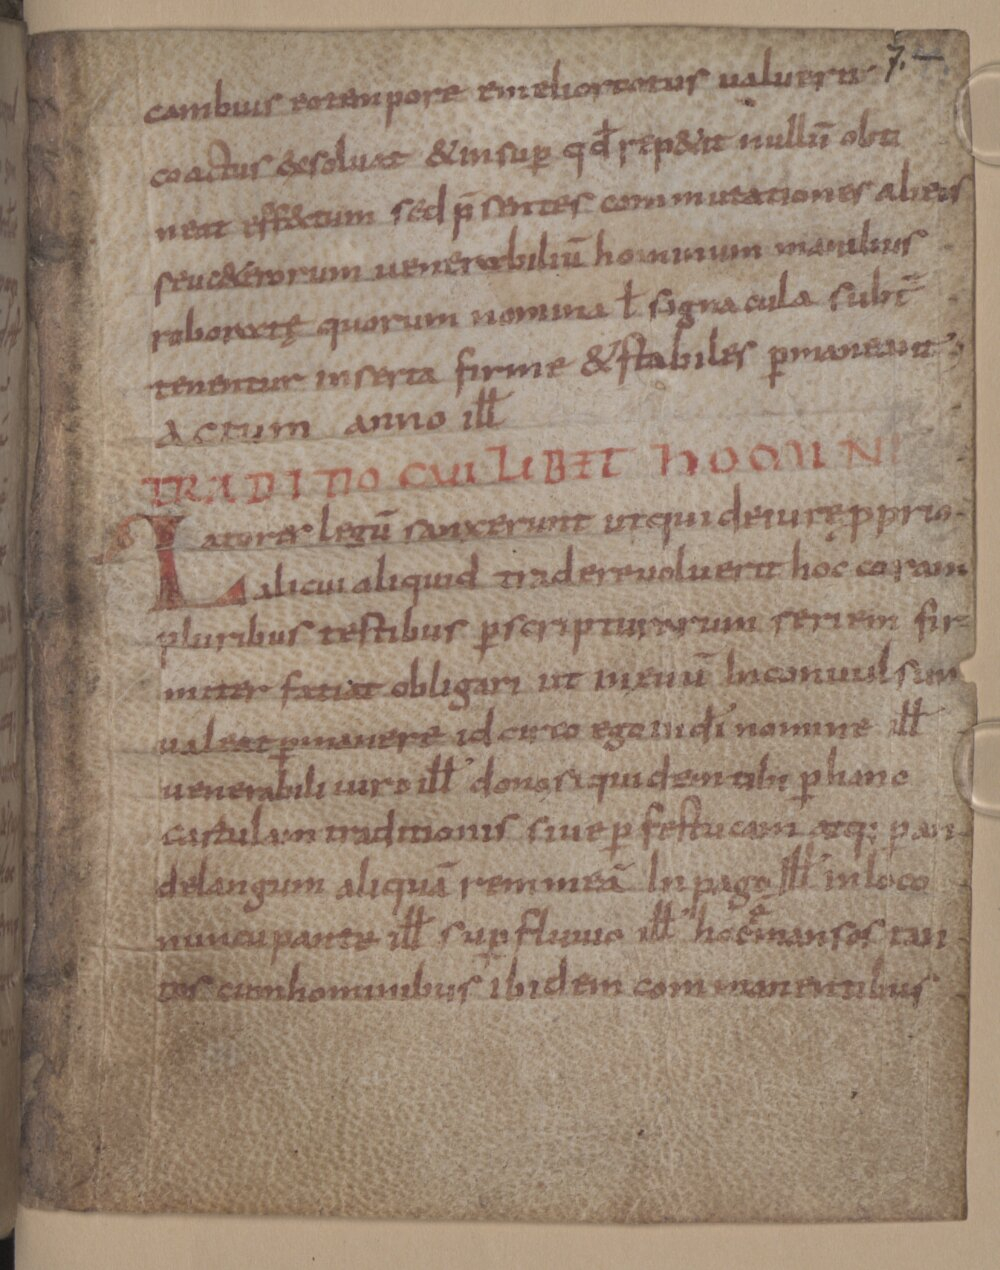 7.
cambius eo tempore emeliortatus valuerit
coactus &solvat &insup qd̄ rep&it nullū obti
neat eff&tum sed p̄sentes commutationes aliens
seuc&erorum uenerabiliū hominum manibus
roboratę quorum nomina ł signacula subt̄
tenentur inserta firme &stabiles pmaneant
Actum anno ill̄
TRADITIO CUILIBET HOMINI
Latores legū sanxerunt utqui deiurę pprio
alicui aliquid traderevoluerit hoc coram
pluribus testibus pscripturarum seriem fir
miter faciat obligari ut ineuū Inconvulsum
valeat pmanere idcirco ego indī nomine ill̄
uenerabili uiro ill̄ dono siquidem tibi phanc
cartulam traditionis siue p festucam atq; pan
delangum aliquā remmeā In pago ill̄ inloco
nuncupante ill̄ sup fluuio ill̄ hoc ē mansos tan
tos cumhominibus ibidem commanentibus